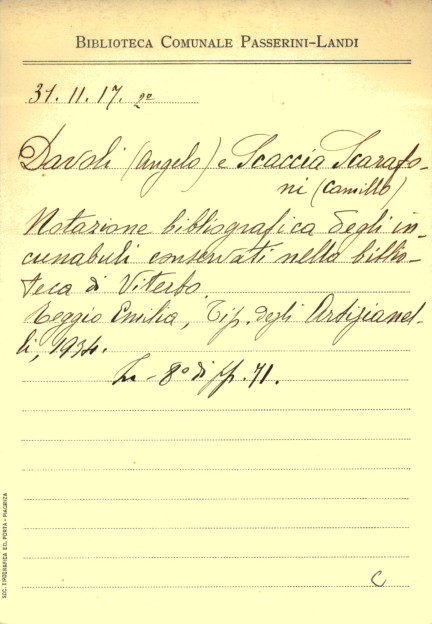 BIBLIOTECA COMUNALE PASSERINI-LANDI
31. 11. 17. 20
Davoli (Angelo) e Scaccia Scarafo-
ni (Camillo)
Notazione bibliografica degli in-
cunabuli conservati nella biblio-
teca di Viterbo.
Reggio Emilia, Tip. degli Artigianel-
li, 1934.
In-8° di pp. 71.
C
SOC. TIPOGRAFICA ED. PORTA - PIACENZA